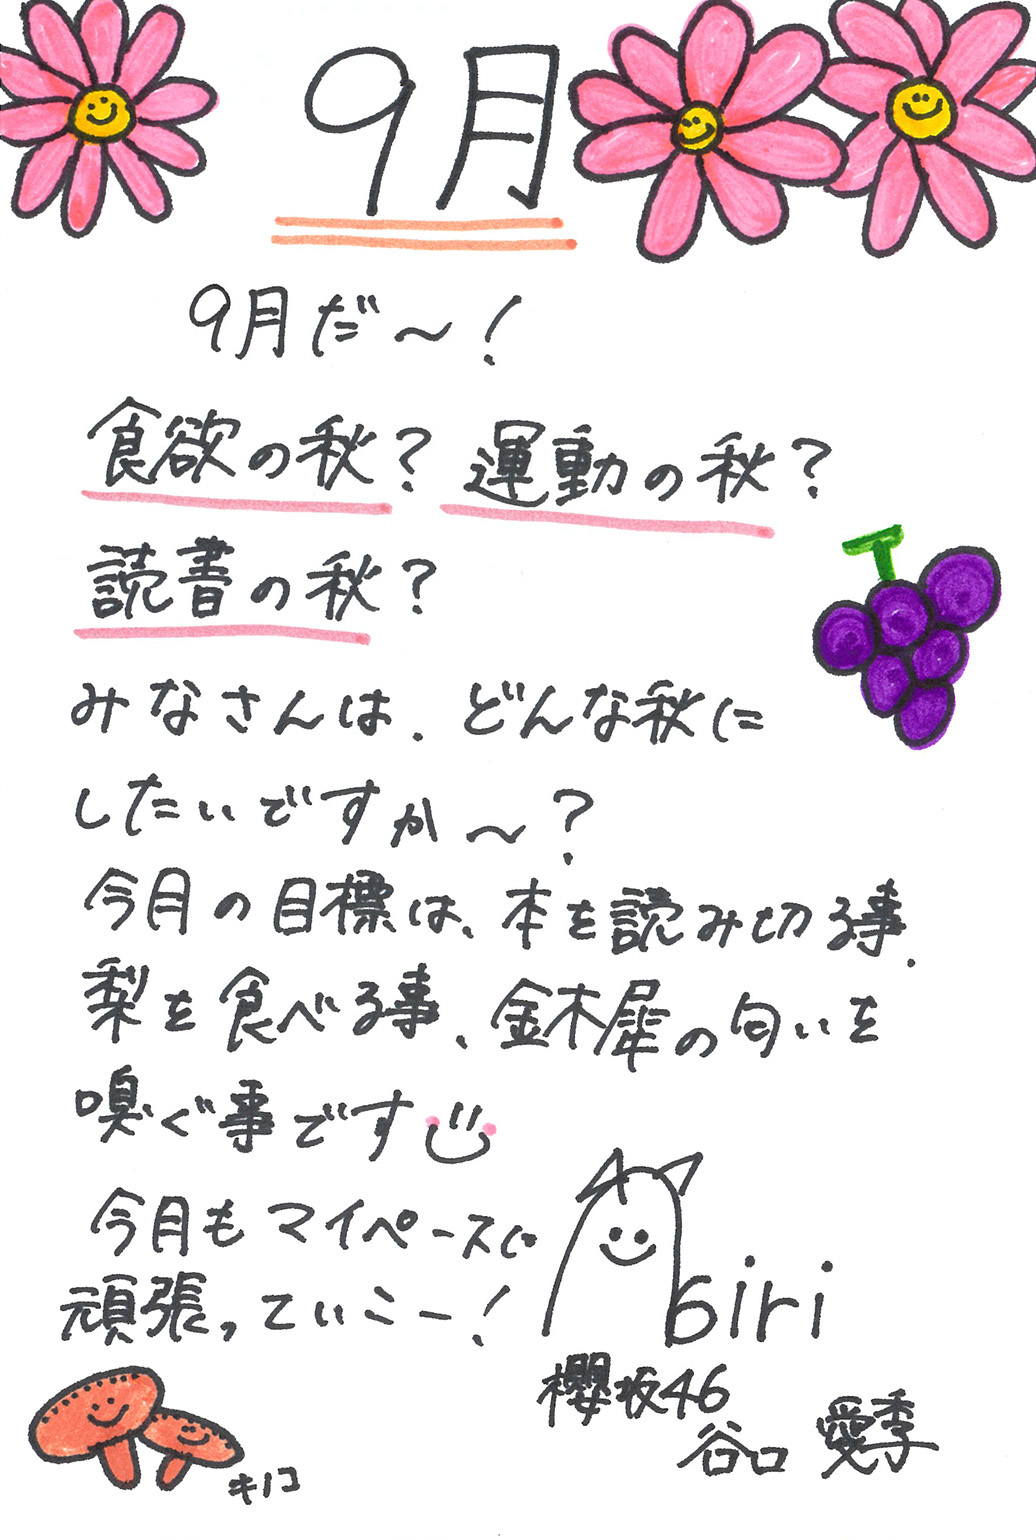 9月
9月だ〜!
食欲の秋? 運動の秋?
読書の秋?
みなさんは、どんな秋に
したいですか〜?
今月の目標は、本を読み切る事、
梨を食べる事、金木犀の匂いを
嗅ぐ事です
今月もマイペースに
頑張っていこー!
Abiri
櫻坂46
谷口 愛季
キノコ